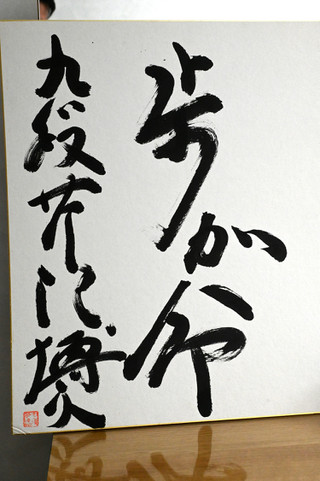 歩が命
九段 芹沢博文